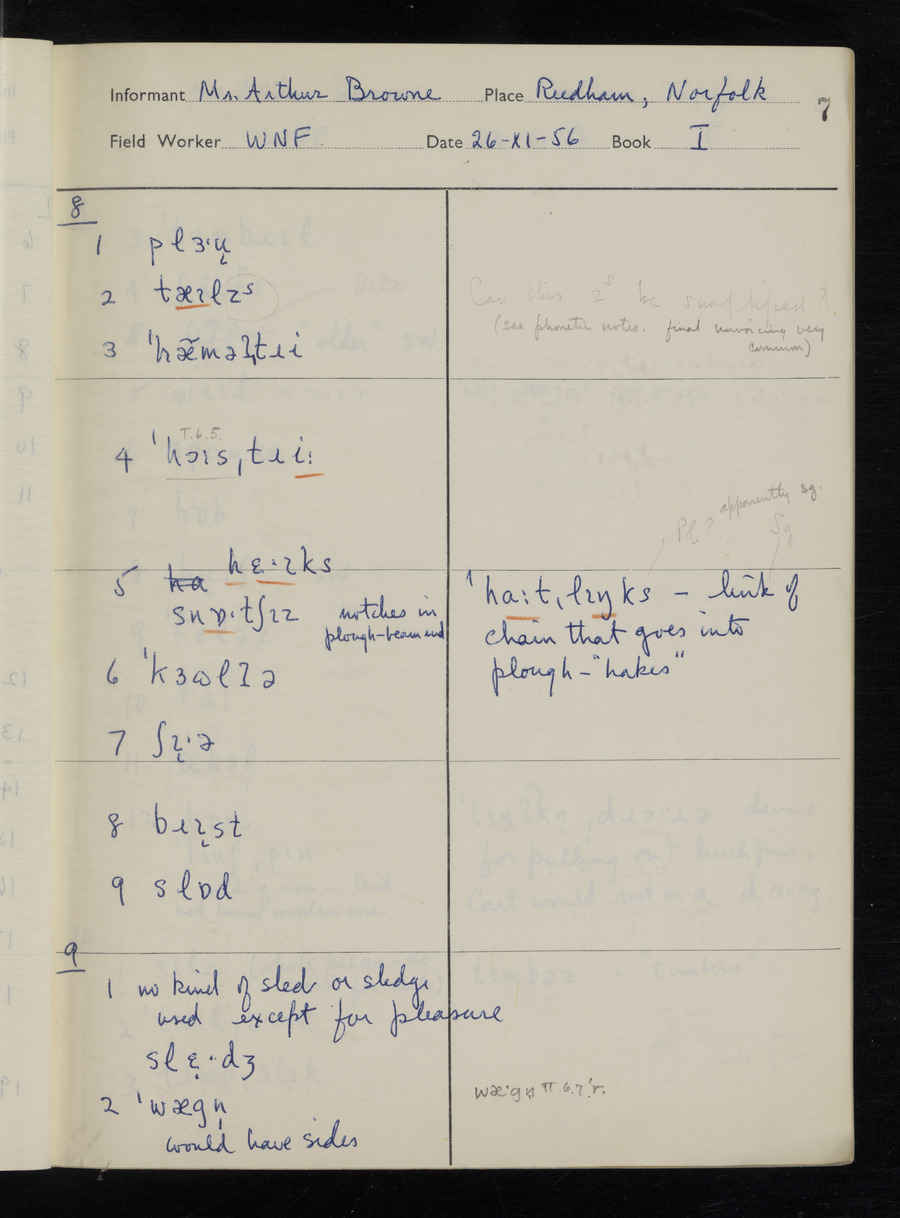 Informant Mr. Arthur Browne Place Reedham, Norfolk
7
Field Worker WNF Date 26-XI-56 Book I
8
1 plɜ·ʉ̨
2 tæɪlzˢ
Can this zˢ be simplified?
(see phonetic notes. final unvoicing very
common)
3 ˈhæ̃məl̩tɹi
T.6.5.
4 ˈhɔɪsˌtɹiː
apparently sg.
Pl? Sg
5 ha hɛ·ɪks
snɒ·tʃɪz notches in
plough-beam end
ˈhaːtˌlɪŋks – link of
chain that goes into
plough-"hakes"
6 ˈkɜɷlɪə
7 ʃɪ̨·ə
8 beɪ̨st
9 slɒd
9
1 no kind of sled or sledge
used except for pleasure
slɛ̣·dʒ
2 ˈwægn̩
would have sides
wæ·gn̩